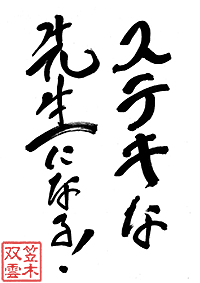 ステキな
先生になる!
笠木
双雲